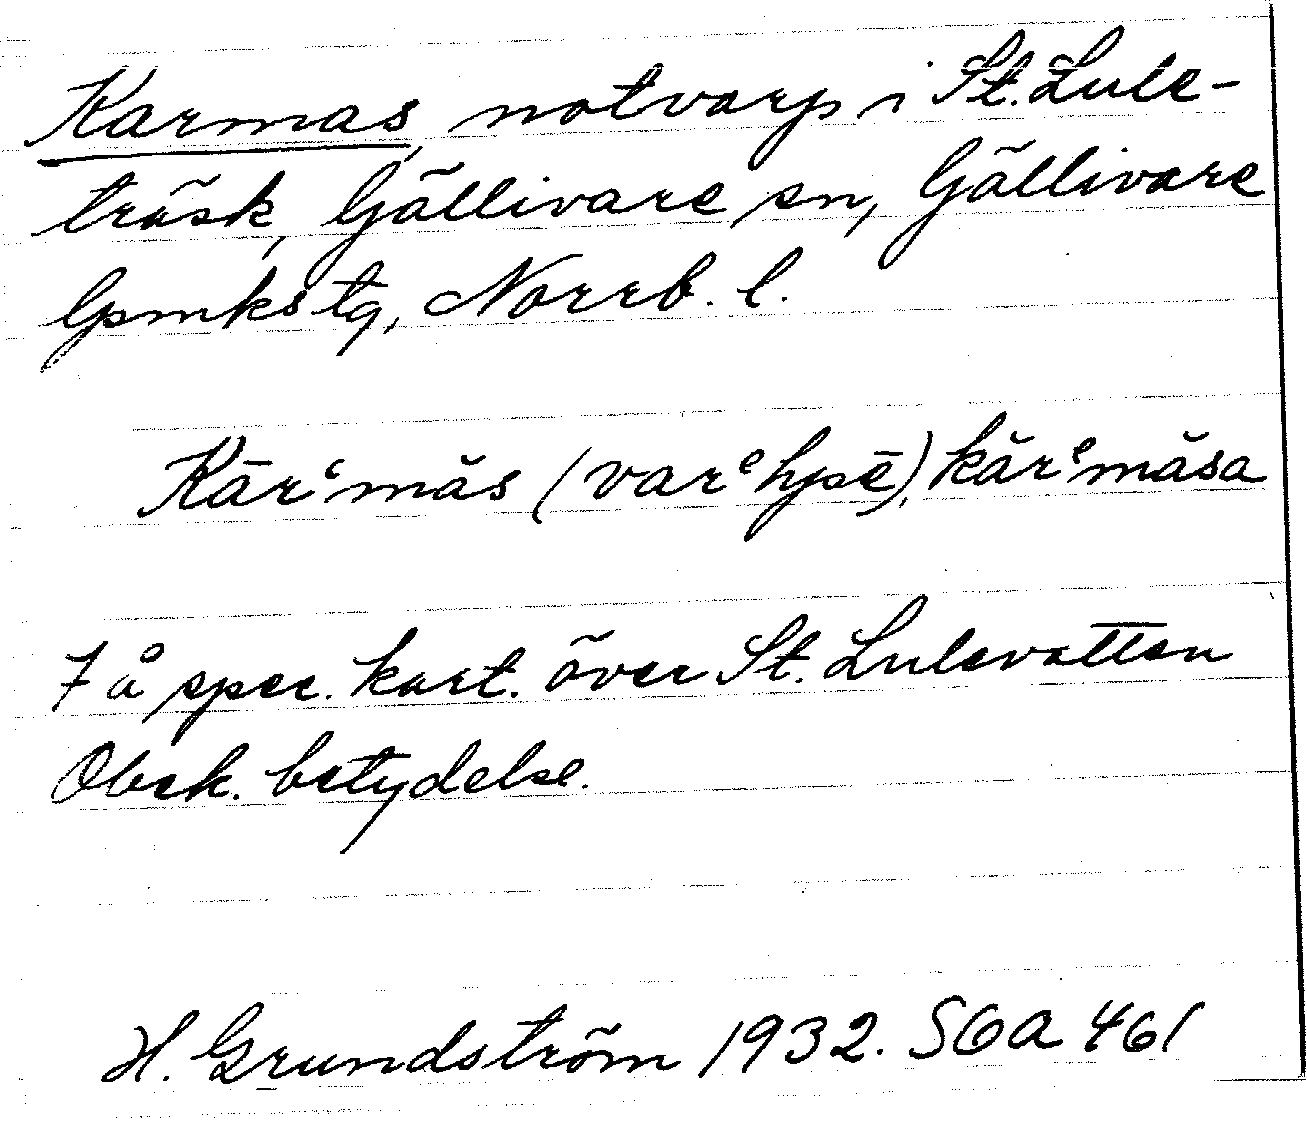 Karmas, notvarp i St. Lule-
träsk, Gällivare sn, Gällivare
lpmkstg, Norrb. l.
Kārᵉmăs (varᵉhpē), kărᵉmăsa
7 å spec. kart. över St. Lulevatten
Obek. betydelse.
H. Grundström 1932. SOA 461